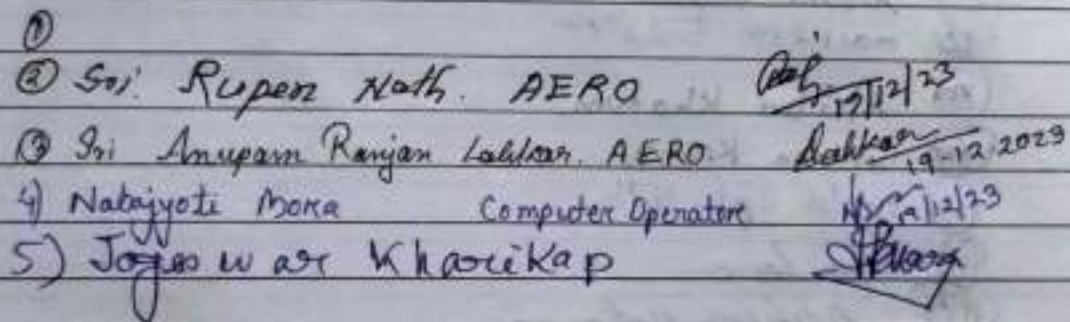 ①
② Sri. Rupen Nath. AERO 19/12/23
③ Sri Anupam Ranjan Lahkar. AERO. Lahkar 19-12-2023
4) Nabajyoti Bora Computer Operatore 19/12/23
5) Jogeswar Kharikap